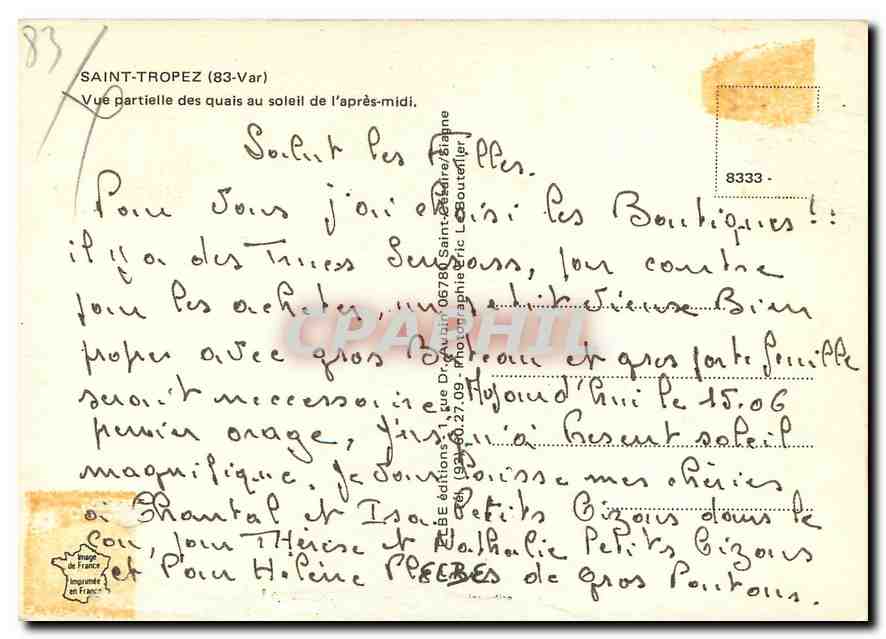 83
SAINT-TROPEZ (83-Var)
Vue partielle des quais au soleil de l'après-midi.
8333 -
Salut les Filles.
Pour Vous j'ai choisi les Boutiques !!
il y a des Trucs Sensass, par contre
pour les acheter, un petit vieux Bien
propre avec gros Bateau et gros porte feuille
serait neccessaire. Aujourd'hui le 15.06
premier orage, jusqu'à présent soleil
magnifique. Je vous laisse mes chéries
à Chantal et Isa. Petits Bizous dans le
Cou, pour Thérèse et Nathalie Petits Bizous
et Pour Hélène Pleins de gros Poutous.
ELBE éditions - 1, rue Dr. d'Aubin 06780 Saint-Cézaire/Siagne
Tél. (93) 60.27.09 - Photographie Eric Le Bouteiller
ELBE
Image
de France
Imprimée
en France
CPAPHIL